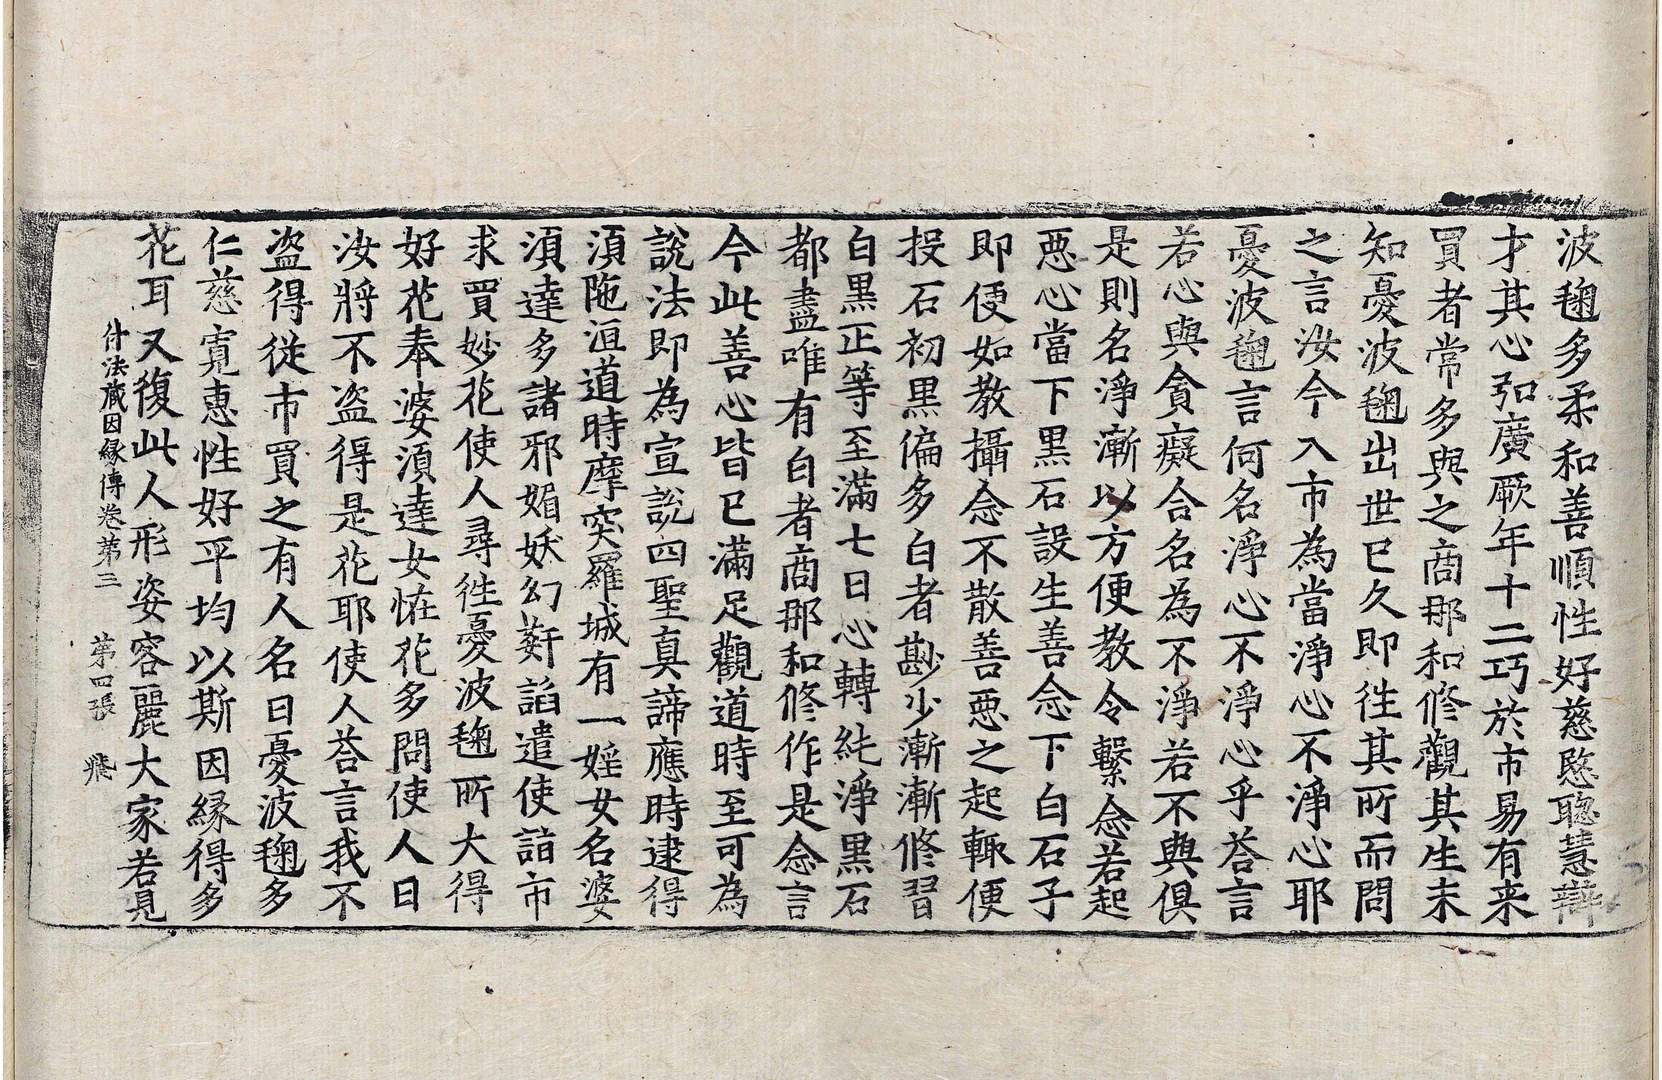 波毱多柔和善順性好慈愍聡慧辯
才其心弘廣厥年十二巧於市易有来
買者常多與之商那和修觀其生未
知憂波毱出世已久即徃其所而問
之言汝今入市為當淨心不淨心耶
憂波毱言何名淨心不淨心乎荅言
若心與貪癡合名為不淨若不與俱
是則名淨漸以方便教令繫念若起
惡心當下黒石設生善念下白石子
即便如教攝念不散善惡之起輙便
投石初黒偏多白者尠少漸漸修習
白黒正等至滿七日心轉純淨黒石
都盡唯有白者商那和修作是念言
今此善心皆已滿足觀道時至可為
說法即為宣說四聖真諦應時逮得
湏陁洹道時摩突羅城有一婬女名婆
湏達多諸邪媚妖幻姧諂遣使詣市
求買妙花使人尋徃憂波毱所大得
好花奉婆湏達女恠花多問使人曰
汝將不盗得是花耶使人荅言我不
盗得從市買之有人名曰憂波毱多
仁慈寛惠性好平均以斯因縁得多
花耳又復此人形姿容麗大家若見
付法蔵因縁傳卷第三 第四張 飛